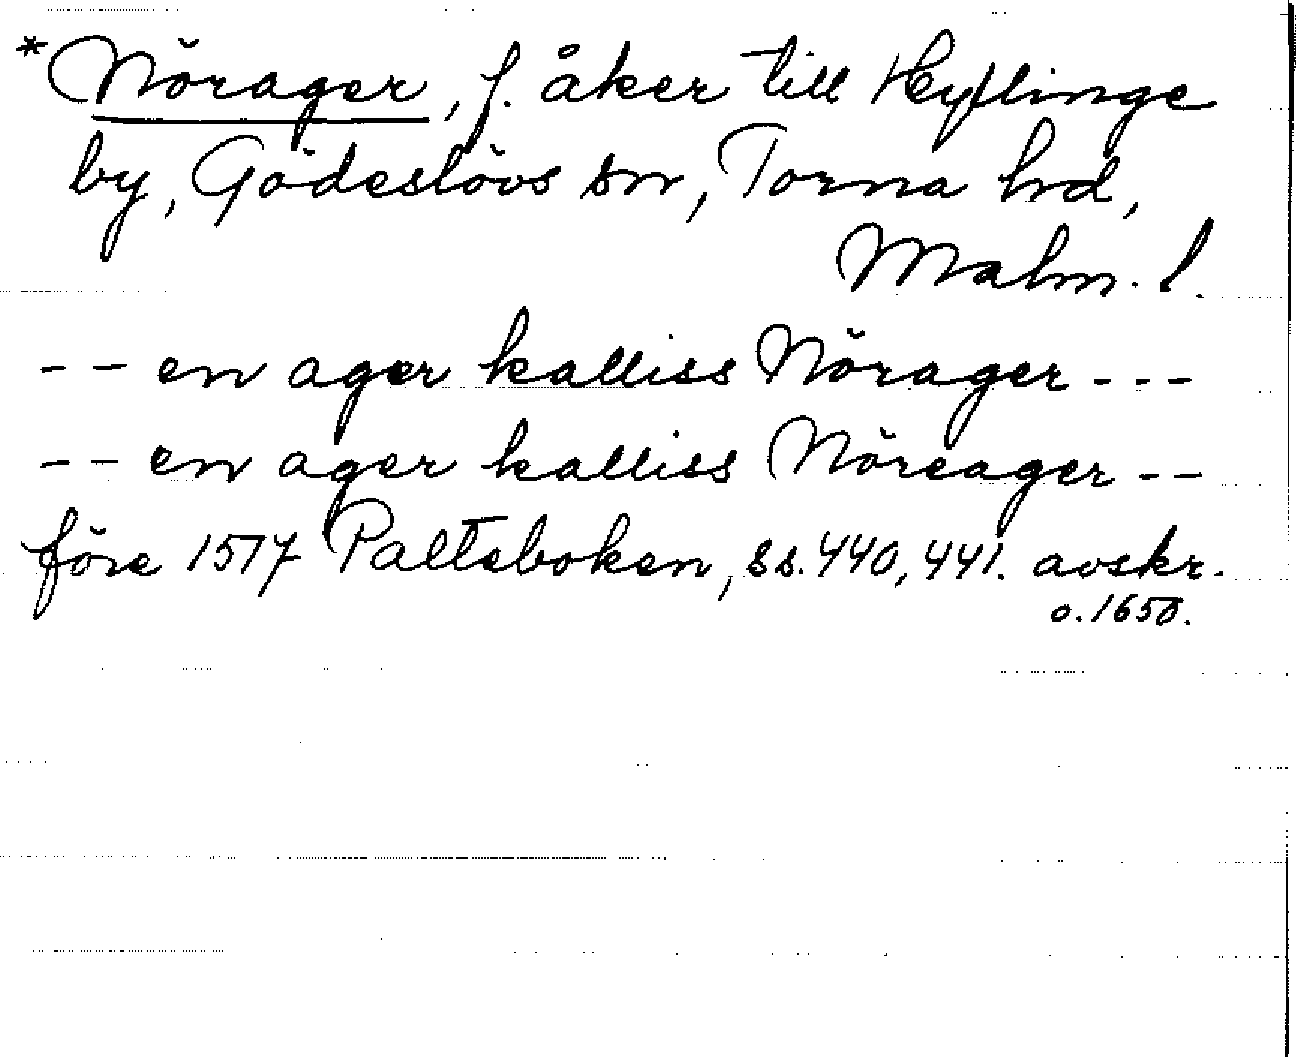 *Nörager, f. åker till Heyflinge
by, Gödeslövs sn, Torna hd,
Malm. l.
-- en ager kalliss Nörager ---
-- en ager kalliss Nöreager --
före 1517 Palteboken, ss. 440, 441. avskr.
o. 1650.